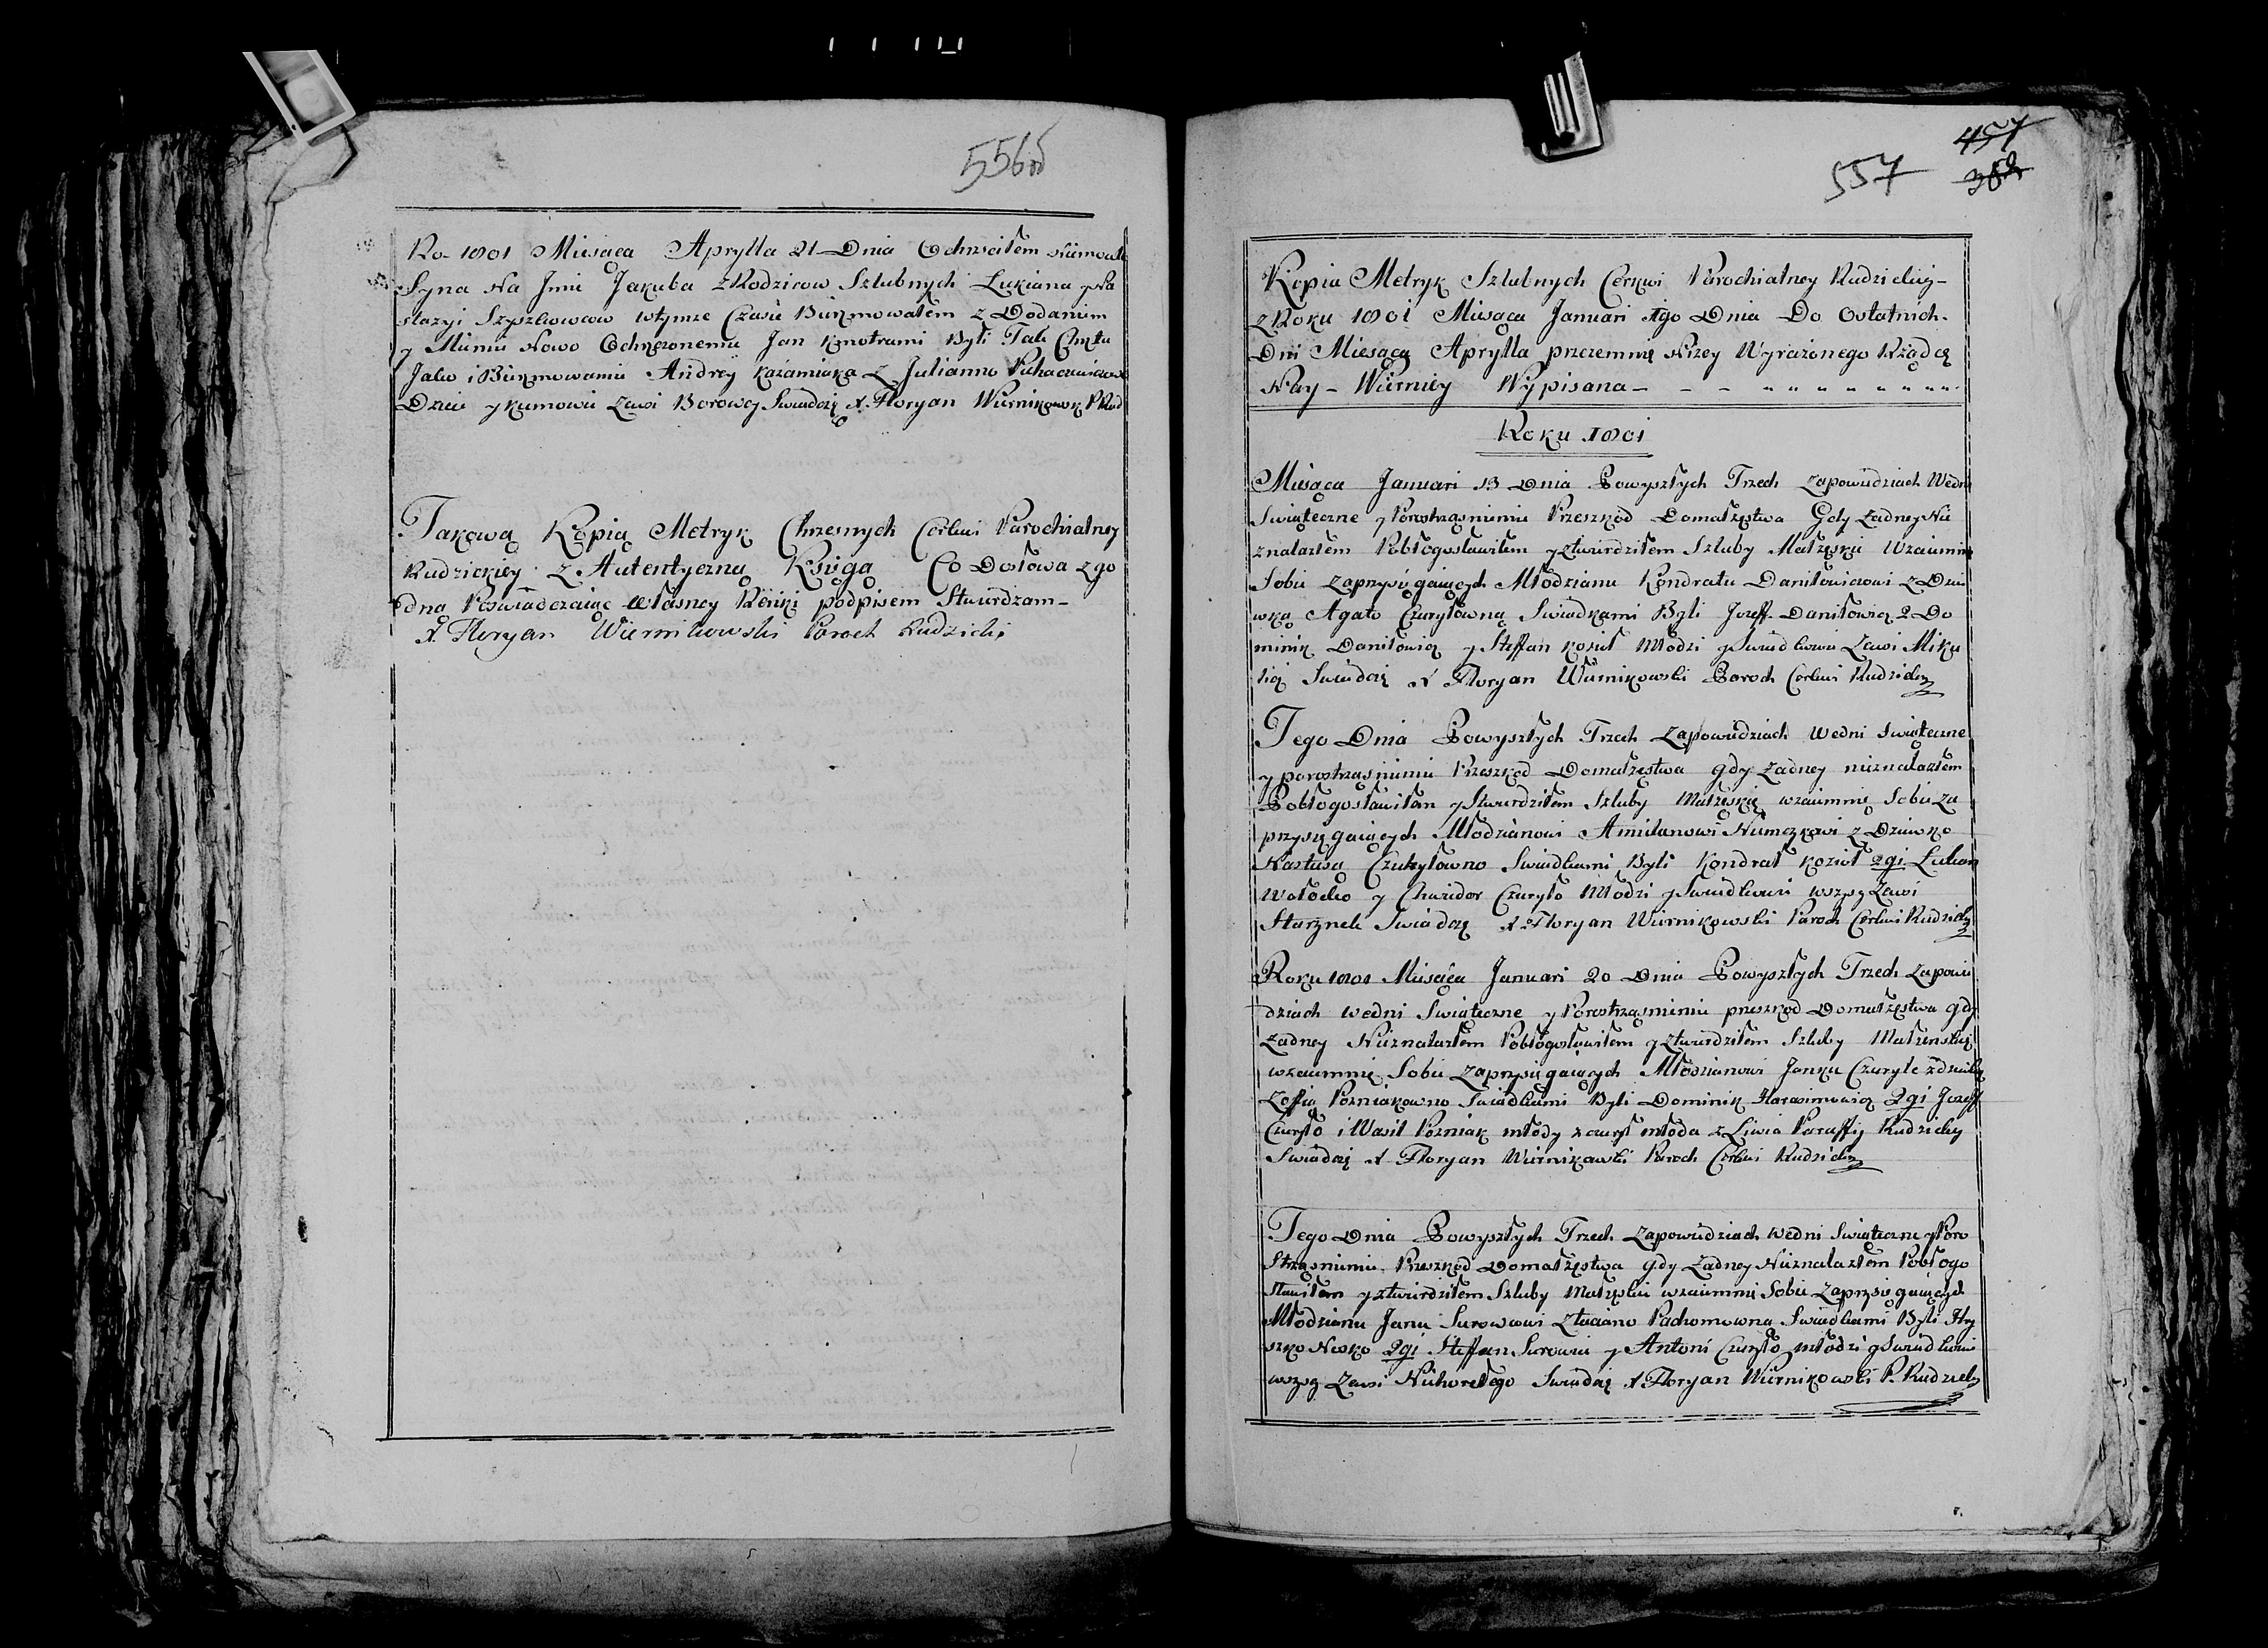 556 об
Ro- 1801 Miesąca Aprylla 21 Dnia Ochrzciłem Niemowle
Syna Na Jmie Jakuba z Rodzicow Szlubnych Łukiana y Na
stazyi Szyszkowcow wtymze Czasie Birzmowałem z Dodaniem
y Mienia Nowo Ochrzczonemu Jan Kmotrami Byli Tak Chrztu
Jako i Birzmowania Andrey Kaźamiaka z Julianno
Dzicie y kumowie Zewsi Borowey Swiadczę X Floryan Wiernikowsk P Rud
Takową Kopią Metryk Chrzesnych Cerkwi Parochialney
Rudzickiey z Autentyczną Księgą Co Dosłowa zgo
dną Poswiadczaiąc własney Ręki podpisem Stwierdzam-
X Floryan Wiernikowski Paroch Rudzicki
457
557
382
Kopia Metryk Szlubnych Cerkwi Parochialney Rudzickiey-
z Roku 1801 Miesąca Januari 1go Dnia Do Ostatnich-
Dni Miesąca Aprylla przezemnię Nizey Wyrażonego Rządcę
Nay- Wierniey Wypisana- - - " " " " " " " " "
Roku 1801
Miesąca Januari 13 Dnia Powyszłych Trzech Zapowiedziach Wedni
Swiąteczne y Porostrząsnieniu Przeszkod Domałzęstwa Gdy Żadney Nie
znalazłem Pobłogosławiłem y ztwierdziłem Szluby Małzęskie Wzaiemnie
Sobie Zaprzysięgaiących Młodzianu Kondratu Daniłowiczowi z Dzie
wką Agato Czuryłowną Swiadkami Byli Jozeff Daniłowicz 2 Do
minik Daniłowicz y Steffan Kozieł Młodzi y Swiadkowie Zewsi Miku
licz Swiadczę X Floryan Wiernikowski Paroch Cerkwi Rudzickey
Tego Dnia Powyszłych Trzech Zapowiedziach Wedni Swiąteczne
y porostrząsnieniu Przeszkod Domałzęstwa gdy Żadney nieznalazłem
Pobłogosławiłam y Stwierdziłem Szluby Małzęskię wzaiemnię Sobie Za
przysięgaiących Młodzianowi Amilanowi Niemczkowi z Dziewko
Nastasą Czuryłowno Swiadkami Byli Kondrat Kozioł 2gi Lukan
Wołodko y Chwidor Czuryło Młodzi y Swiadkowie wszyscy Zewsi
Starzynek Swiadczę X Floryan Wiernikowski Paroch Cerkwi Rudzickey
Roku 1801 Miesąca Januari 20 Dnia Powyszłych Trzech Zapowie
dziach wedni Swiąteczne y Porostrząsnieniu przeszkod Domałzęstwa gdy
Żadney Nieznalazłem Pobłogosławiłem y ztwierdziłem Szluby Małzenskię
wzaiemnię Sobie Zaprzysięgaiących Młodzianowi Janku Czuryle zdziewką
Zoffią Pozniakowno Swiadkami Byli Dominik Harasimowicz 2gi Jozeff
Czuryło i Wasil Pozniak młody z młoda z Liwia Paraffij Rudzickey
Swiadczę X Floryan Wiernikowski Paroch Cerkwi Rudzickey
Tego Dnia Powyszłych Trzech Zapowiedziach Wedni Swiąteczne y Poro
Strząsnieniu Przeszkod Domałzęstwa gdy Żadney Nieznalazłem Pobłogo
sławiłem y ztwierdziłem Szluby Małzęskie wzaiemnie Sobie Zaprzysięgaiących
Młodzianu Janu Surowcowi z Pachomowna Swiadkami Byli Hry
szko Nosko 2gi Steffan Surowiec y Antoni Czuryło młodzi y Swiadkowie
wszyscy Zewsi Nihorełego Swiadczę X Floryan Wiernikowski P. Rudzickey